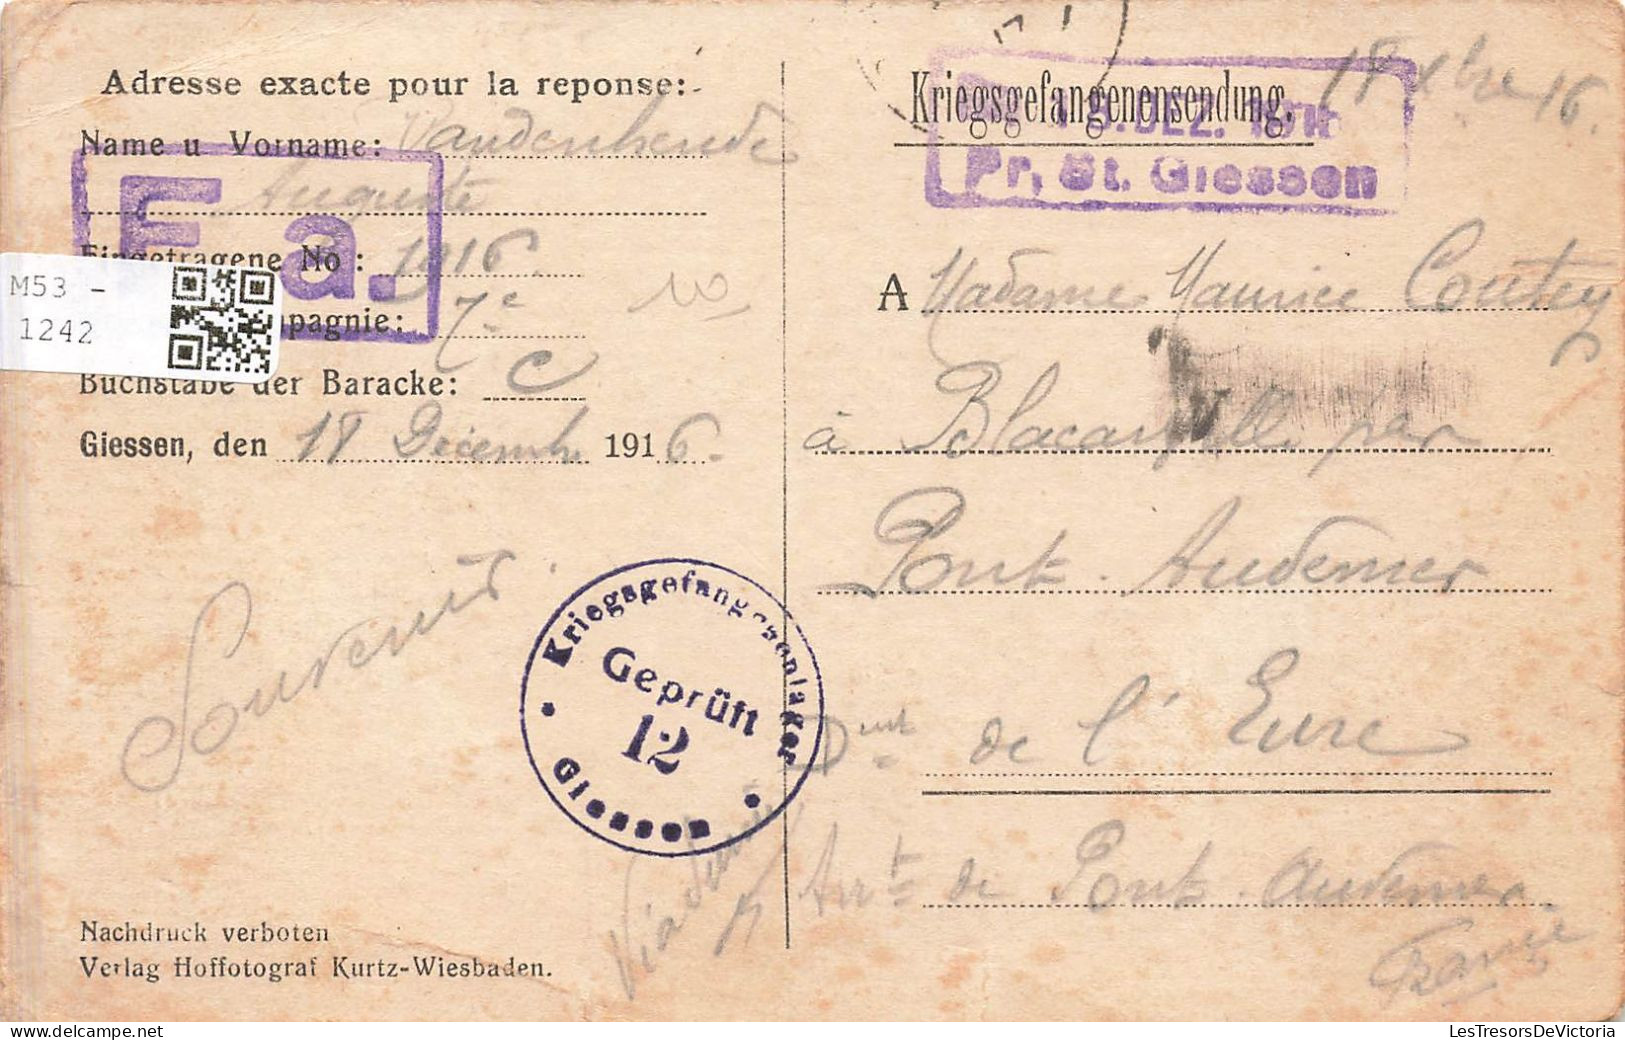 Adresse exacte pour la reponse:
Name u Vorname: Vandenhende
Auguste
Eingetragene No: 1916
Compagnie: 7e
Buchstabe der Baracke: C
Giessen, den 18 Décembre 1916.
F. a.
M53 -
1242
Souvenir
Kriegsgefangenenlager
Geprüft
12
Giessen
Nachdruck verboten
Verlag Hoffotograf Kurtz-Wiesbaden.
Kriegsgefangenensendung.
18 Xbre 16.
DEZ.
Pr. St. Giessen
A Madame Maurice Coutey
à par
Pont Audemer
Dmt de l'Eure
Arrt de Pont-Audemer
France
LesTresorsDeVictoria